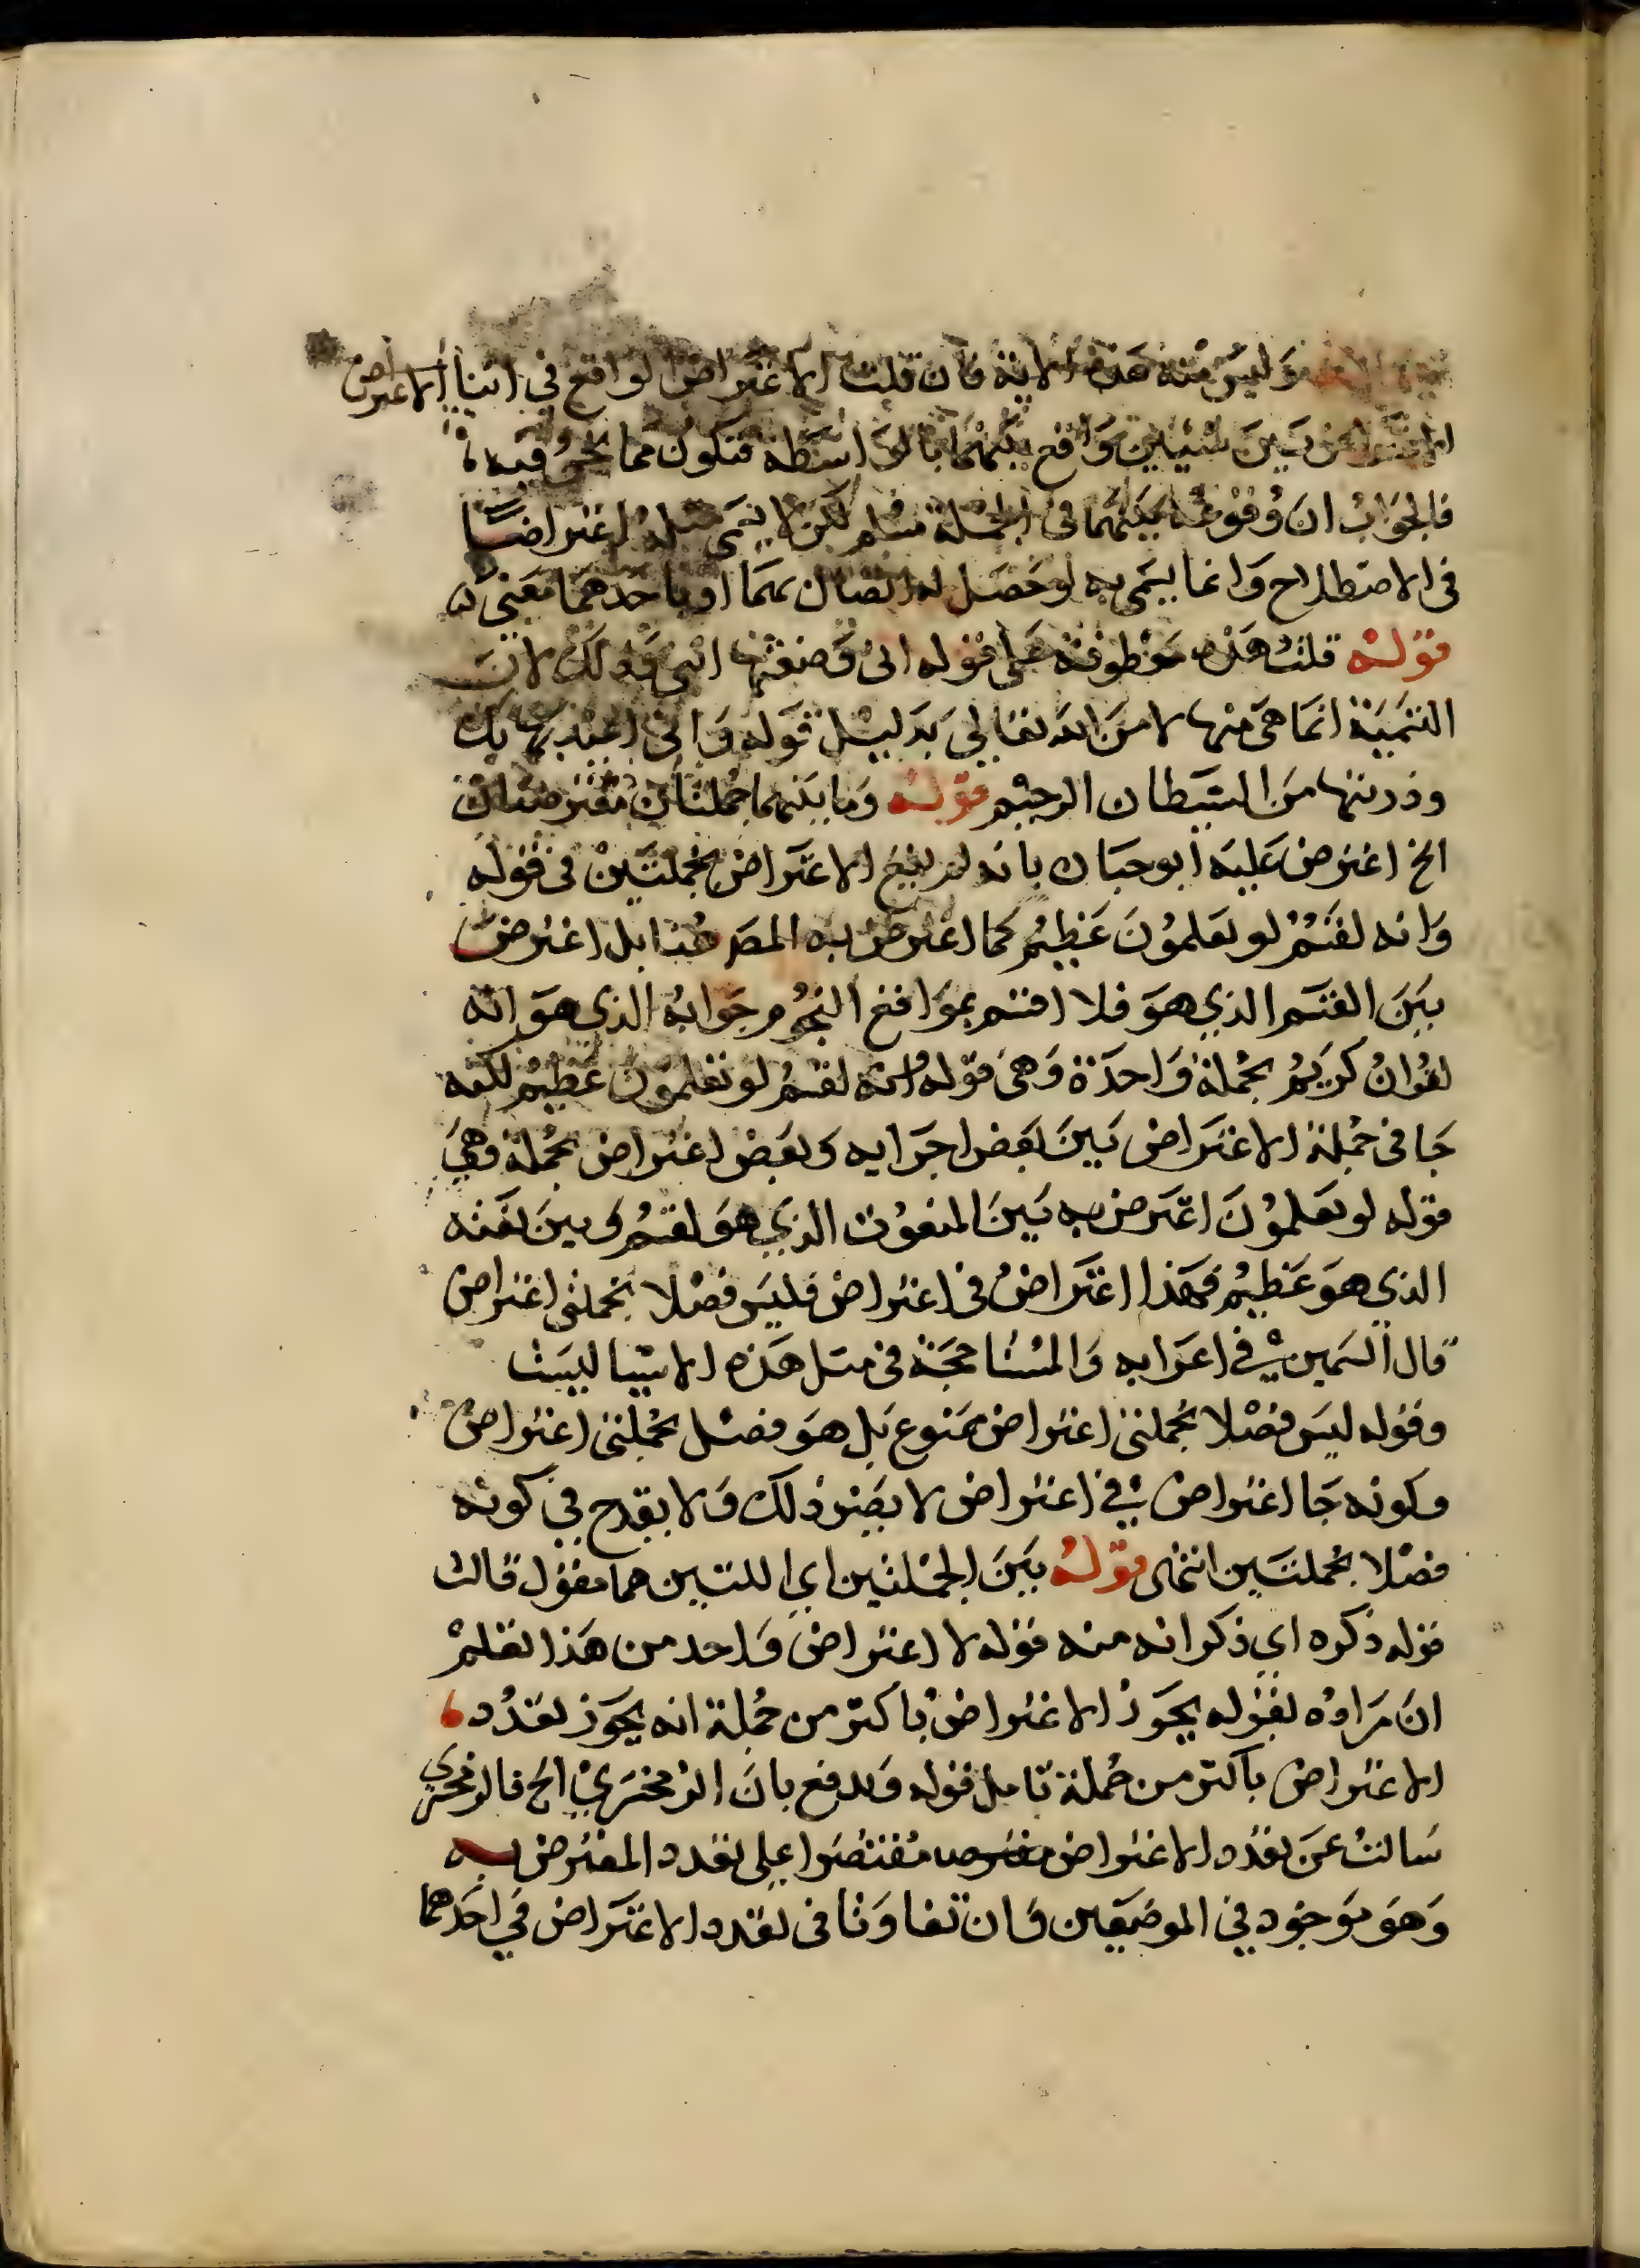 وليس منه هذه الاية فان قلت الاعتراض الواقع في اثناء الاعتراض
بين شيئين واقع بينهما بالواسطة فتكون مما نحن فيه
فالجواب ان وقوعه بينهما في الجملة مسلم لكن لا يسمى مثله اعتراضا
في الاصطلاح وانما يسمى به لو حصل له اتصال بهما او باحدهما معنى
قوله قلت هذه معطوفة على قوله اني وضعتها انثى وذلك لان
التسمية انما هي منها لا من الله تعالى بدليل قوله واني اعيذها بك
وذريتها من الشيطان الرجيم قوله وما بينهما جملتان معترضتان
الخ اعترض عليه ابو حيان بانه لم يقع الاعتراض بجملتين في قوله
وانه لقسم لو تعلمون عظيم كما اعترض به المص هنا بل اعترض
بين القسم الذي هو فلا اقسم بمواقع النجوم وجوابه الذي هو انه
لقران كريم بجملة واحدة وهي قوله وانه لقسم لو تعلمون عظيم لكنه
جا في جملة الاعتراض بين بعض اجزايه وبعض اعتراض بجملة وهي
قوله لو تعلمون اعترض به بين المنعوت الذي هو لقسم وبين نعته
الذي هو عظيم فهذا اعتراض في اعتراض فليس فصلا بجملتي اعتراض
قال السمين في اعرابه والمشاححة في مثل هذه الاشيا ليست
وقوله ليس فصلا بجملتي اعتراض ممنوع بل هو فصل بجملتي اعتراض
وكونه جا اعتراض في اعتراض لا يضر ذلك ولا يقدح في كونه
فصلا بجملتين انتهى قوله بين الجملتين اي اللتين هما مقول قالت
قوله ذكره اي ذكر انه منه قوله لا اعتراض واحد من هذا تعلم
ان مراده بقوله يجوز الاعتراض باكثر من جملة انه يجوز تعدد
الاعتراض باكثر من جملة تامل قوله ويدفع بان الزمخشري الخ فالزمخشري
ساكت عن تعدد الاعتراض مقتصرا على تعدد المعترض به
وهو موجود في الموضعين وان تفاوتا في تعدد الاعتراض في احدهما